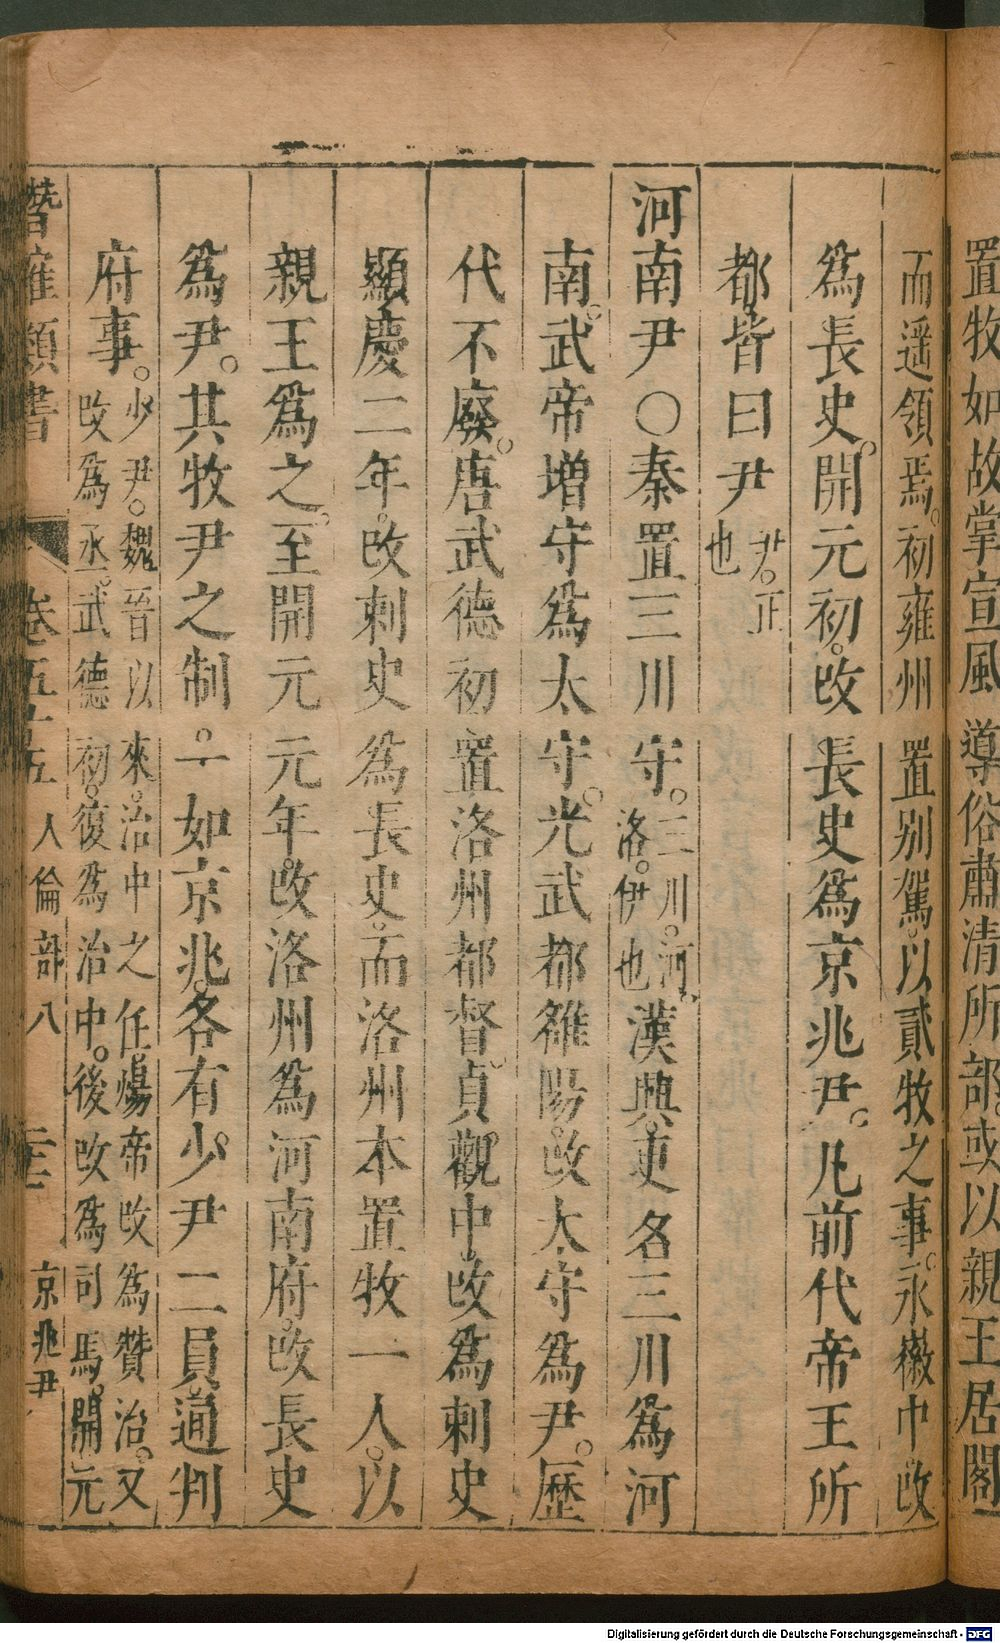 置牧如故掌宣風導俗肅清所部或以親王居閣
而遥領焉。初雍州置别駕。以貳牧之事。永徽中改
爲長史。開元初。改長史爲京兆尹。凡前代帝王所
都皆曰尹尹。正也
河南尹○秦置三川守。三川。河。洛。伊也漢興。更名三川爲河
南。武帝増守爲太守。光武都雒陽。改太守爲尹。歷
代不廢。唐武德初置洛州都督。貞觀中。改爲刺史
顯慶二年。改刺史爲長史。而洛州本置牧一人。以
親王爲之。至開元元年。改洛州爲河南府。改長史
爲尹。其牧尹之制。一如京兆。各有少尹二員通判
府事。少尹。魏晉以來。治中之任煬帝改爲贊治。又
改爲丞。武德初。復爲治中。後改爲司馬。開元
潛確類書 卷五十五 人倫部八 二十二 京兆尹
Digitalisierung gefördert durch die Deutsche Forschungsgemeinschaft - DFG